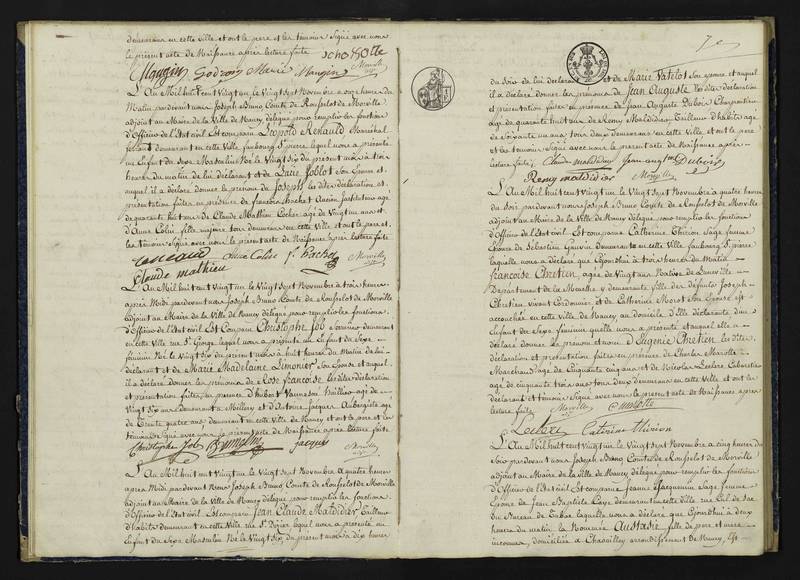 demeurans en cette Ville et ont le pere et les temoins Signé avec nous
le présent acte de Naissance après lecture faite
Mangin Godron Marie Mangin Morville
L'An Mil huit cent Vingt un le Vingt Sept Novembre a onze heures du
Matin pardevant nous Joseph Bruno Comte de Rousselot de Morville
adjoint au Maire de la Ville de Nancy délégué pour remplir les fonctions
d'Officier de l'Etat civil Est comparu Léopold Renauld Maréchal
ferrant demeurant en cette Ville faubourg St pierre lequel nous a présenté
un Enfant du Sexe Masculin Né le Vingt Six du présent mois à trois
heures du matin de lui déclarant et de Marie Joblot Son Epouse et
auquel il a déclaré donner le prénom de Joseph les dites déclaration et
présentation faites en présence de françois
de quarante huit ans de Claude Mathieu Cocher agé de Vingt un ans et
d'Anne Colin fille majeure tous demeurans en cette Ville et ont le pere et
les témoins Signé avec nous le présent acte de Naissance après lecture faite
Renaud Anne Colin f. Bachet Morville
Claude mathieu
L'An Mil huit cent Vingt un le Vingt Sept Novembre a trois heures
après Midi pardevant nous Joseph Bruno Comte de Rousselot de Morville
adjoint au Maire de la Ville de Nancy délégué pour remplir les fonctions
d'Officier de l'Etat civil Est Comparu Christophe Job demeurant
en cette Ville rue St George lequel nous a présenté un Enfant du Sexe
féminin Né le Vingt Six du présent mois a huit heures du Matin de lui
déclarant et de Marie Madelaine Limonier Son Epouse et auquel
il a déclaré donner les prénoms de Rose francoise les dites déclaration
et présentation faites en présence d'hubert agé de
Vingt Six ans demeurant a Millery et d'Antoine Jacques Aubergiste agé
de Trente quatre ans demeurant en cette Ville de Nancy et ont le pere et les
témoins Signé avec nous le présent acte de Naissance après lecture faite
Christophe Job jacques Morville
L'An Mil huit cent Vingt un le Vingt Sept Novembre a quatre heures
après Midi pardevant Nous Joseph Bruno Comte de Rousselot de Morville
adjoint au Maire de la Ville de Nancy délégué pour remplir les fonctions
d'Officier de l'Etat civil Est comparu Jean Claude Maldidier Tailleur
d'habits demeurant en cette Ville rue St Dizier lequel nous a présenté un
Enfant du Sexe Masculin Né le Vingt Six du présent mois a dix heures
du Soir de lui déclarant et de Marie Vatelot Son épouse et auquel
il a déclaré donner les prénoms de Jean Auguste les dites déclaration
et présentation faites en présence de Jean Auguste Dubois Charpentier
agé de quarante huit ans de Remy Maldidier Tailleur d'habits agé
de Soixante un ans tous deux demeurans en cette Ville et ont le pere
et les temoins Signé avec nous le présent acte de Naissance après
lecture faite Claude maldidier jean Dubois
Remy maldidier Morville
L'An Mil huit cent Vingt un le Vingt Sept Novembre a quatre heures
du Soir pardevant nous Joseph Bruno Comte de Rousselot de Morville
adjoint au Maire de la Ville de Nancy délégué pour remplir les fonctions
d'Officier de l'Etat civil Est comparue Catherine Thirion Sage femme
Epouse de Sébastien Gauvin demeurant en cette Ville faubourg St pierre
laquelle nous a déclaré que Cejourdhui à trois heures du Matin
francoise Chretien agée de Vingt ans Native de Luneville
Département de la Meurthe y demeurante fille des défunts Joseph
Chretien vivant Cordonnier et de Catherine Morot Son Epouse est
accouchée en cette Ville de Nancy au domicile d'Elle déclarante d'un
Enfant du Sexe féminin quelle nous a présenté et auquel elle a
déclaré donner le prénom et nom d'Eugenie Chretien les dites
déclaration et présentation faites en présence de Charles Marotte
Marchand agé de Cinquante cinq ans et de Nicolas Leclerc Cabaretier
agé de cinquante trois ans tous deux demeurans en cette Ville et ont les
déclarante et témoins Signé avec nous le présent acte de Naissance après
lecture faite Morville Marotte
Leclerc Caterine thirion
L'An Mil huit cent Vingt un le Vingt Sept Novembre a cinq heures du
Soir pardevant nous Joseph Bruno Comte de Rousselot de Morville
adjoint au Maire de la Ville de Nancy délégué pour remplir les fonctions
d'Officier de l'Etat civil Est comparu Jeanne Jacquemin Sage femme
Epouse de Jean Baptiste Caye demeurant en cette Ville rue Cul de Sac
du Bureau de Tabac laquelle nous a déclaré que Cejourdhui à deux
heures du matin la Nommée Anstasie fille de pere et mere
inconnus, domiciliée a Chavilloy arrondissement de Nancy, Est